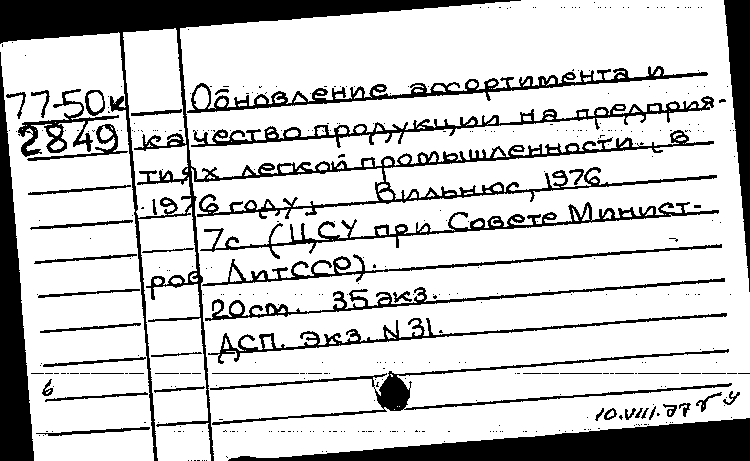 77-50к Обновление ассортимента и
2849 качество продукции на предприя-
тиях легкой промышленности в
1976 году. Вильнюс, 1976.
7с. (ЦСУ при Совете Минист-
ров ЛитССР).
20cm. 35 экз.
ДСП. Экз. N 31.
6
10.VIII.77